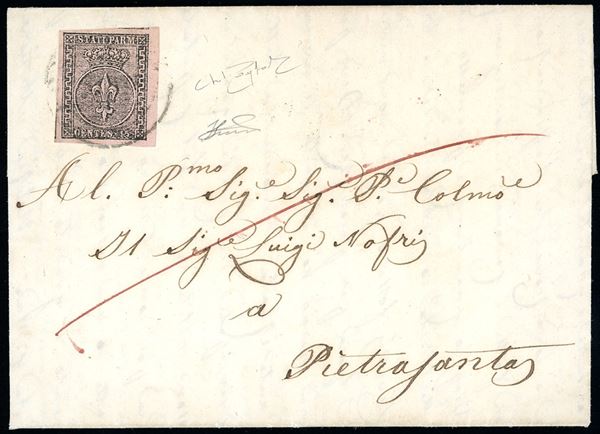 STATI PARM.
CENTES. 15
Al. P:mo Sig.e Sig. P.e Colmo
Il Sige Luigi Nofri
a
Pietrasanta